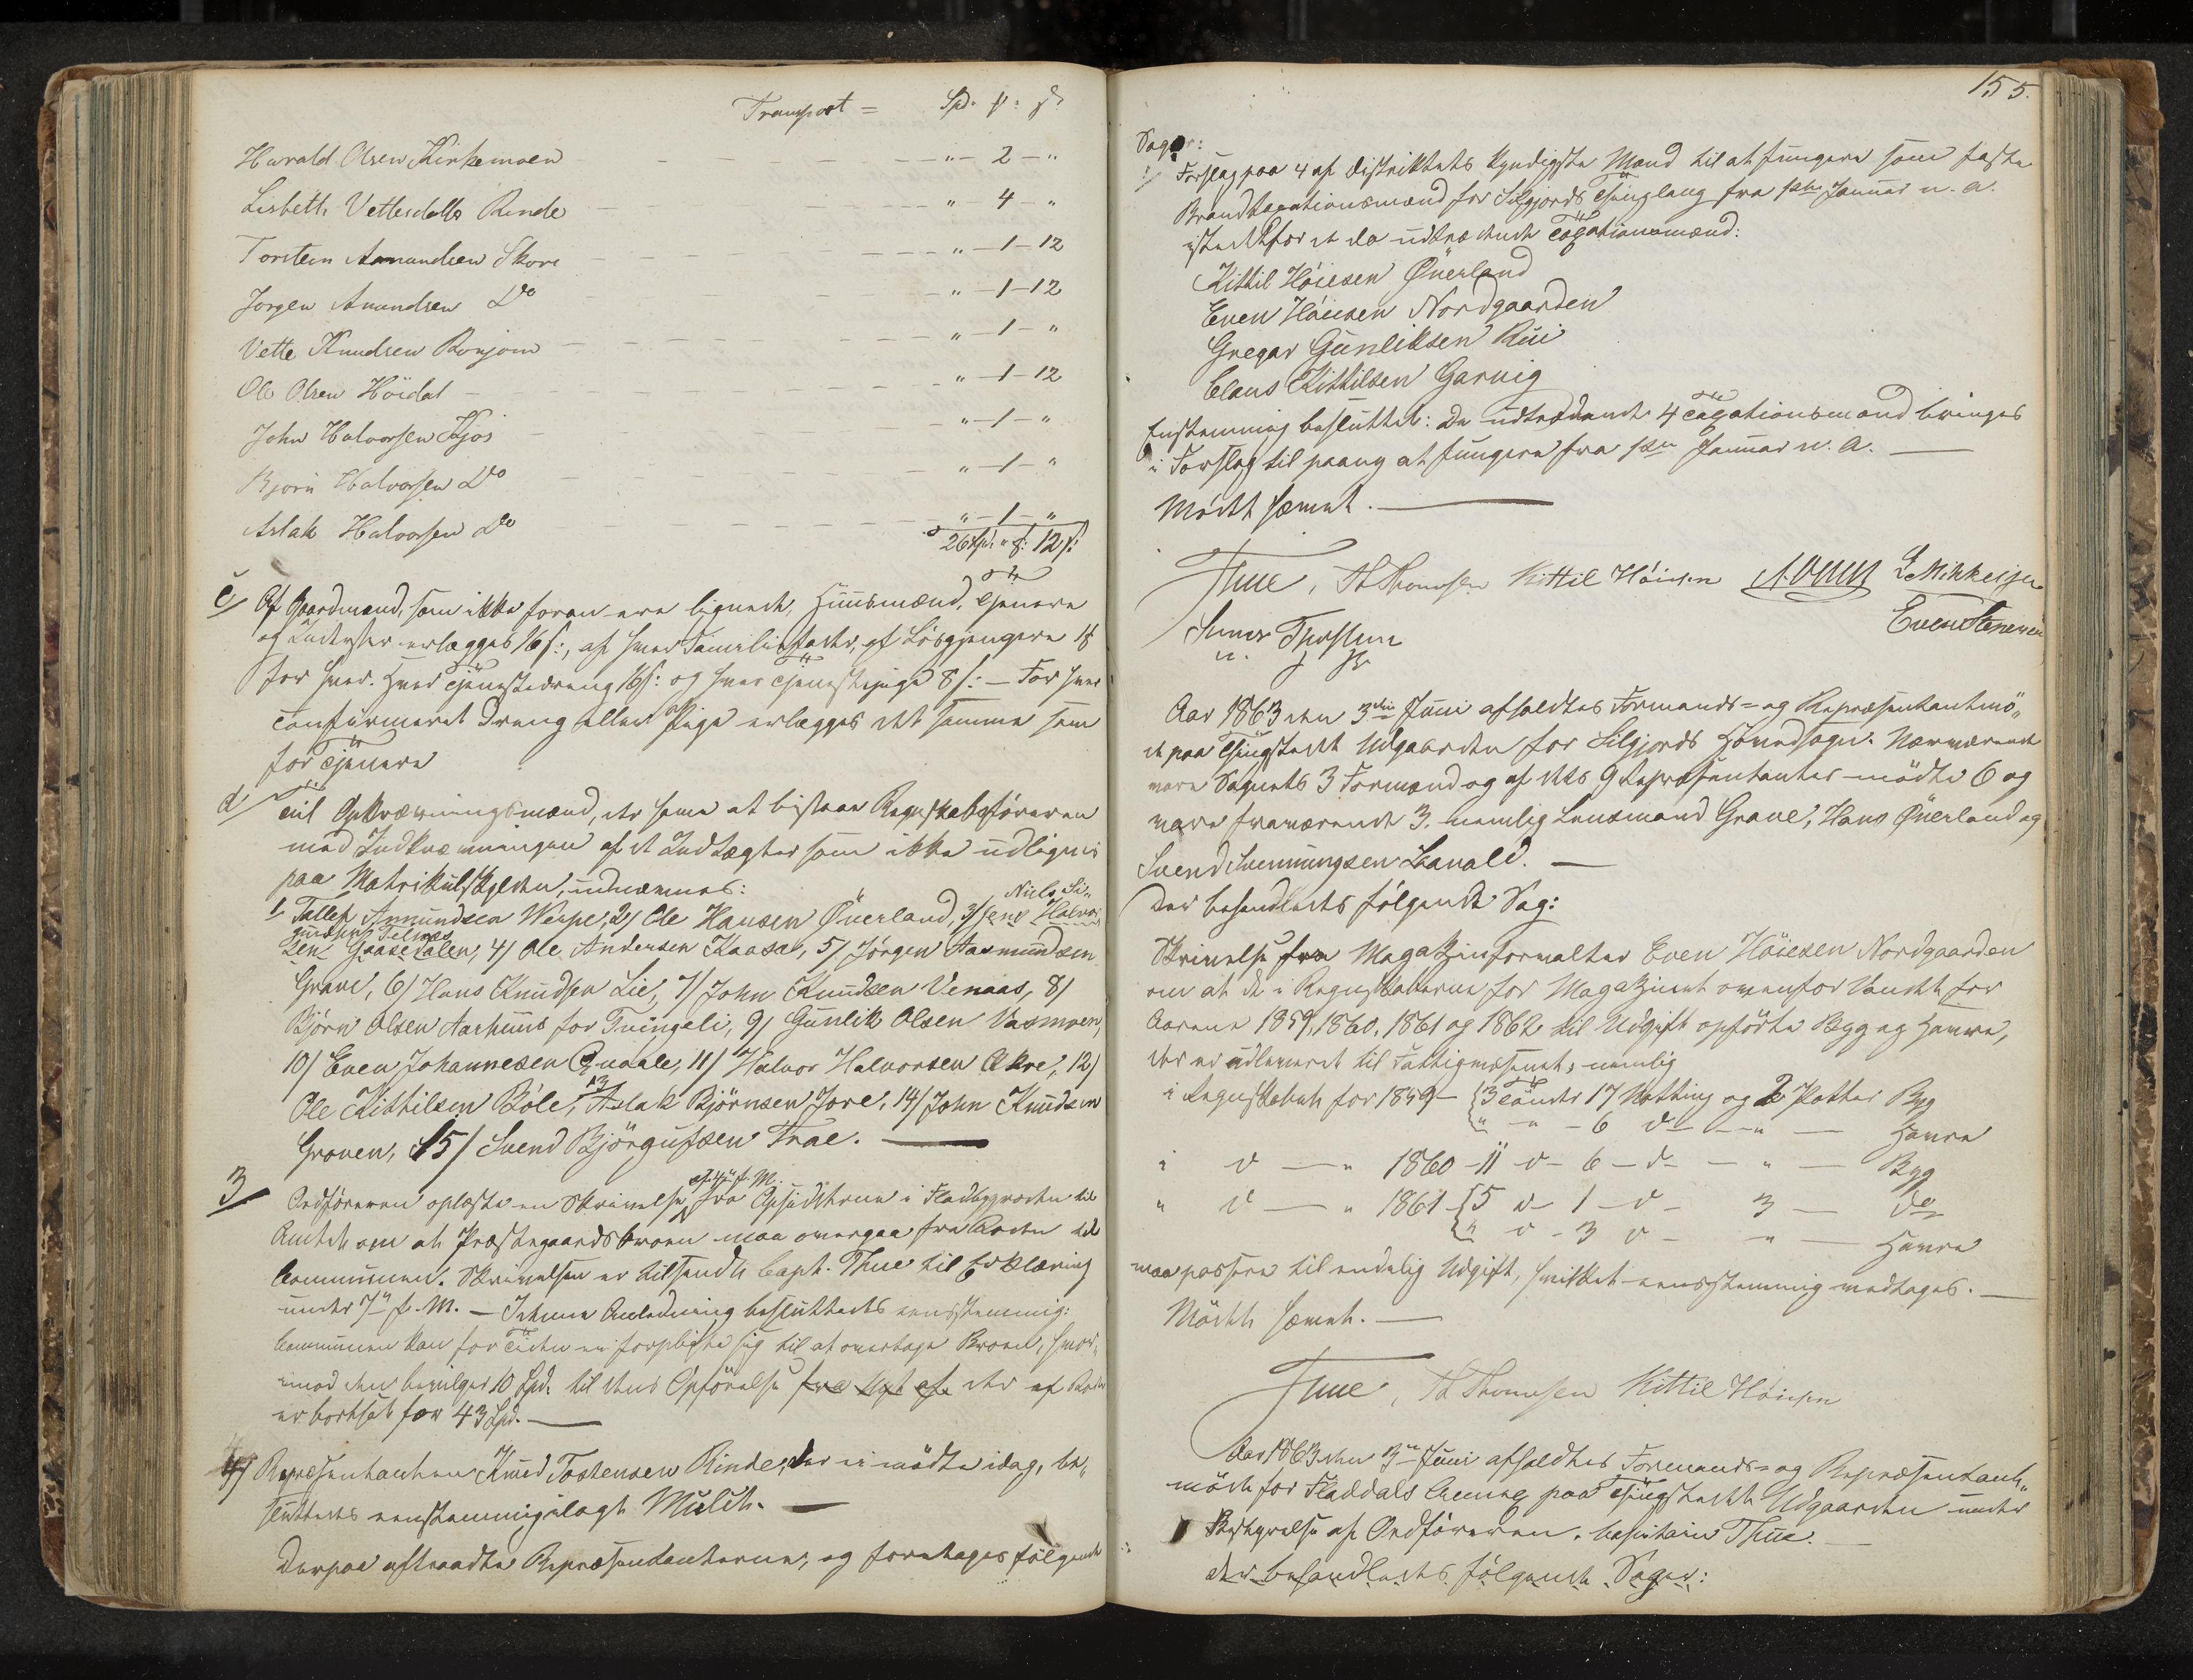 Transport = Spd. ß: s:
Harald Olsen Kirkemoen - - - - - " - 2 - "
Lisbeth Vettesdatter Rinde - - - - " - 4 - "
Torstein Amundsen Skore - - - - " - 1 - 12
Jørgen Amundsen Do - - - - " - 1 - 12
Vette Knudsen Bonjom - - - - " - 1 - "
Ole Olsen Höidal - - - - " - 1 - 12
John Halvorsen Kjos - - - - " - 1 - "
Bjørn Halvorsen Do - - - - " - 1 - "
Aslak Halvorsen Do - - - - " - 1 - "
26 Spd. " ß: 12 s:
c/ Af Gaardmænd, som ikke foran ere lignede, Huusmænd, Tjenere
og Inderster erlægges 16 s:, af hver Familiefader, af Løsgjengere 18
for hver. Hver Tjenestedreng 16 s: og hver Tjenestepige 8 s: - For hver
confirmeret Dreng eller Pige erlægges det samme som
for Tjenere
d/ Til Opkrævningsmænd, der have at bistaae Regnskabsföreren
med Indkrævningen af de Indtægter som ikke udlignes
paa Matrikulskylden, udnævnes:
Niels Si-
1/ Tallef Annundsen Wespe, 2/ Ole Hansen Øuerland, 3/ Jens Halvor
gurdsen Telnæs
sen Gaasedalen, 4/ Ole Andersen Kaasa, 5/ Jörgen Aasmundsen
Grave, 6/ Hans Knudsen Lie, 7/ John Knudsen Venaas, 8/
Björn Olsen Aarhuus for Tvingeli, 9/ Gunlik Olsen Vasmoen,
10/ Even Johannesen Qvaale, 11/ Halvor Halvorsen Økre, 12/
Ole Kittilsen Böle, 13 Aslak Björnsen Jore, 14/ John Knudsen
Groven, 15/ Svend Björgufsen Trae.
3/ Ordföreren oplæste en Skrivelse fra Opsidderne i Fladbygroden til
Amtet om at Præstegaardsbroen maa overgaa fra Roden til
Communen. Skrivelsen er tilsendt Capt. Thue til Erklæring
under 7de f. M. - I denne Anledning besluttedes eenstemmig:
Communen kan for Tiden ei forpligte sig til at overtage Broen, hvor-
imod den bevilger 10 Spd. til dens Opförelse fra Nyt af. der af Roden
er bortsat for 43 Spd.
4/ Repræsentanten Knud Tostensen Rinde, der ei mödte idag, be-
sluttedes eenstemmig ilagt Mulct.
Derpaa aftraadte Repræsentanterne, og foretages fölgende
155.
Sager:
1/ Forslag paa 4 af Distriktets kyndigste Mænd til at fungere som faste
Brandtaxationsmænd for Silgjords Thinglaug fra 1ste Januar n. A.
istedetfor de da udtrædende Taxationsmænd:
Kittil Höiesen Øuerland
Even Höiesen Nordgaarden
Gregar Gunliksen Rui
Claus Kittilsen Garvig
Enstemmig besluttet: De udtrædende 4 Taxationsmænd bringes
i Forslag til paany at fungere fra 1ste Januar n. A.
Mödet hævet.
Thue, Th Thomsen Kittil Höiesen A. Olsen L Mikkelsen
Even Stenersen
Aar 1863 den 3die Juni afholdtes Formands- og Repræsentantmö-
de paa Thingstedet Udgaarden for Silgjords Hovedsogn. Nærværende
vare Sognets 3 Formænd og af dets 9 Repræsentanter mödte 6 og
vare fraværende 3. nemlig Lensmand Grave, Hans Øuerland og
Svend Svennungsen Lavold.
Der behandledes fölgende Sag:
Skrivelse fra Magazinforvalter Even Höiesen Nordgaarden
om at de i Regnskaberne for Magazinet ovenfor Vandet for
Aarene 1859, 1860, 1861 og 1862 til Udgift opförte Byg og Havre,
der er udleveret til Fattigvæsenet, nemlig
i Regnskabet for 1859 - {3 Tönder 17 Notting og 2 Potter Byg
" - " - 6 do - " - Havre
i do - " 1860 - 11 do - 6 - do - " - Byg
" do - " 1861 {5 do - 1 - do - 3 - do
" do - 3 do - " - Havre
maa passere til endelig Udgift, hvilket eensstemmig vedtoges.
Mödet hævet.
Thue, Th Thomsen Kittil Höiesen
Aar 1863 den 3die Juni afholdtes Formands- og Repræsentant-
möde for Fladdals Annex paa Thingstedet Udgaarden under
Bestyrelse af Ordföreren, Capitain Thue.
der behandledes fölgende Sager: